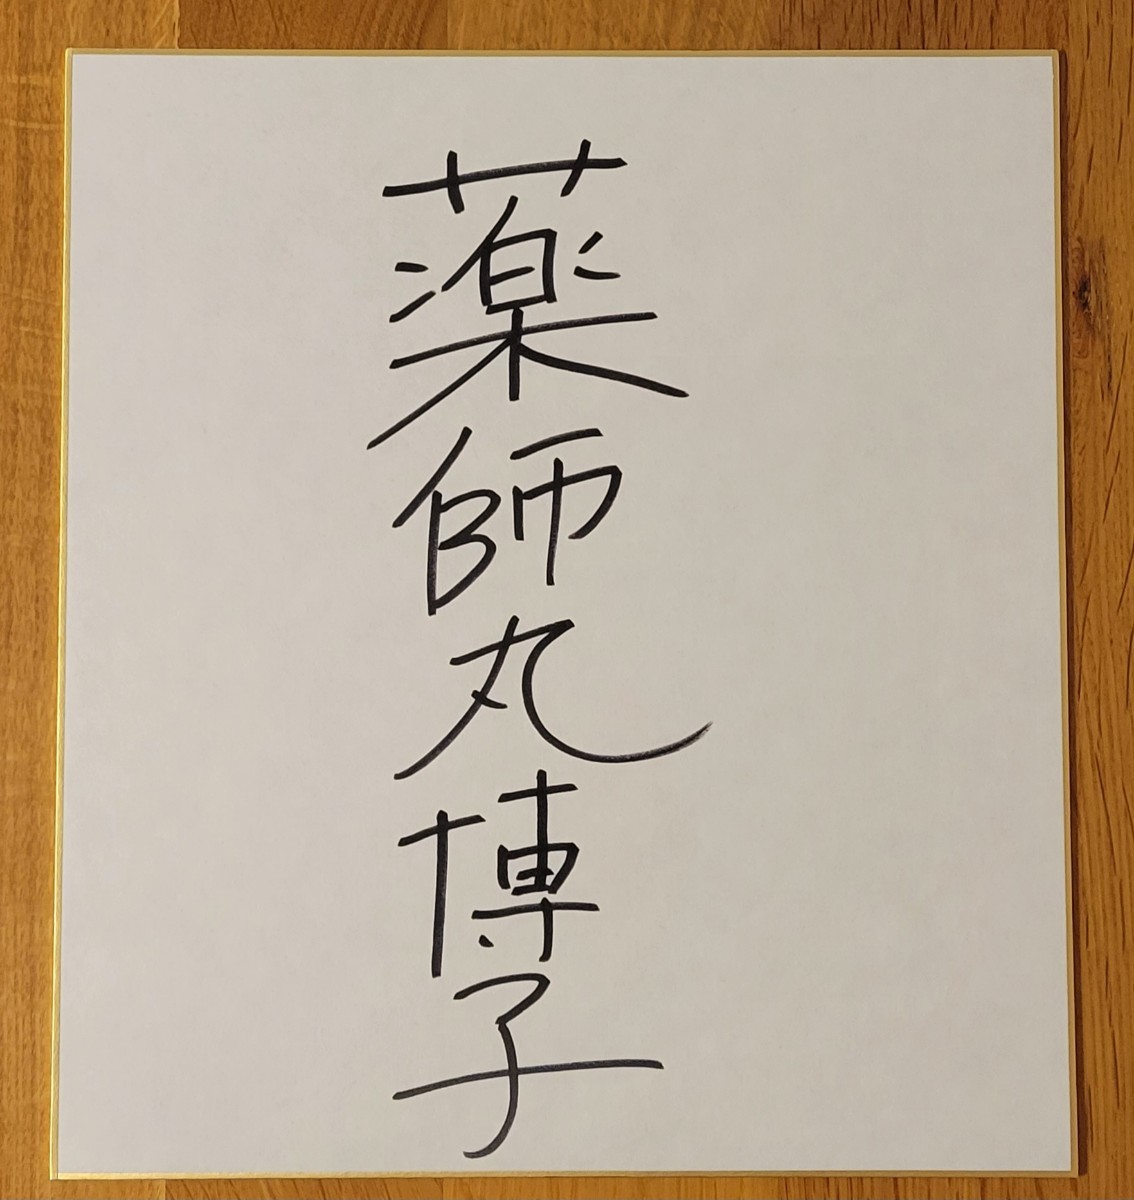 薬師丸博子